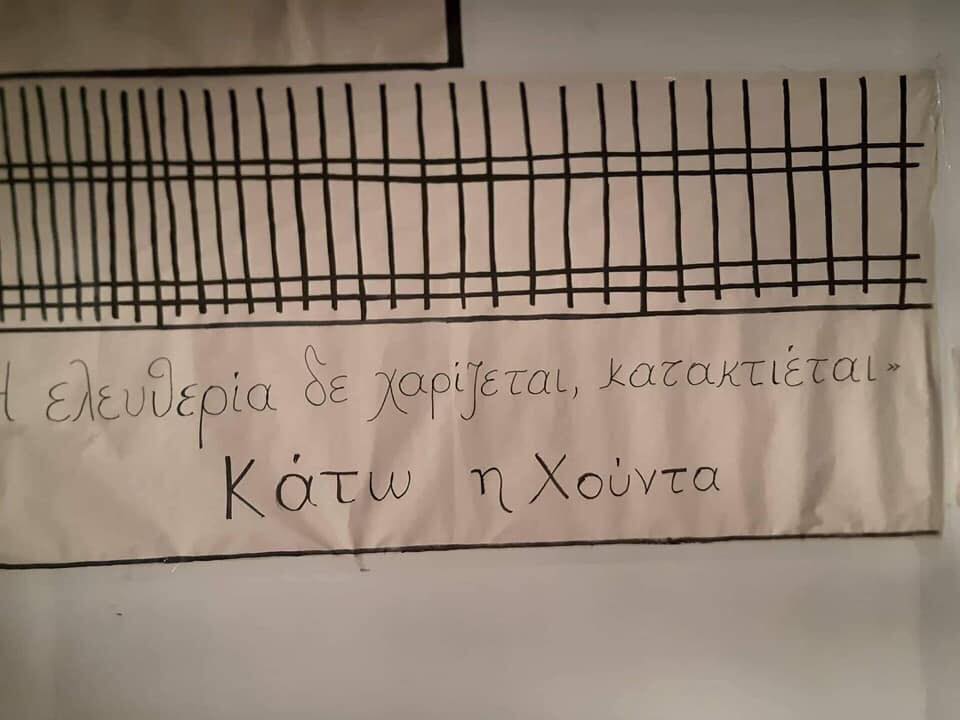 Η ελευθερία δε χαρίζεται, κατακτιέται»
Κάτω η Χούντα